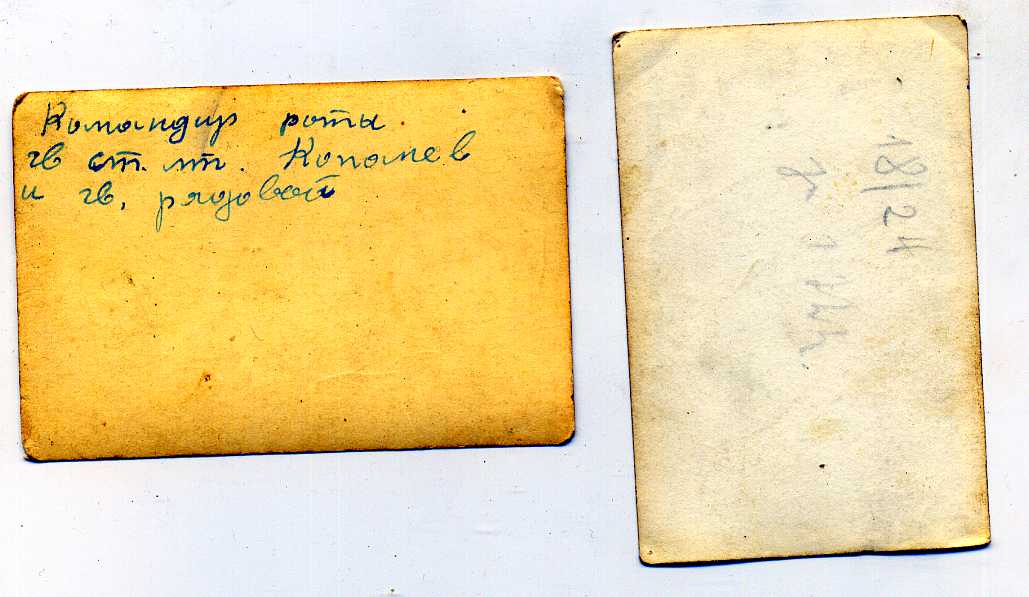 Командир роты.
гв ст. лт. Копанев
и гв. рядовой
18/24